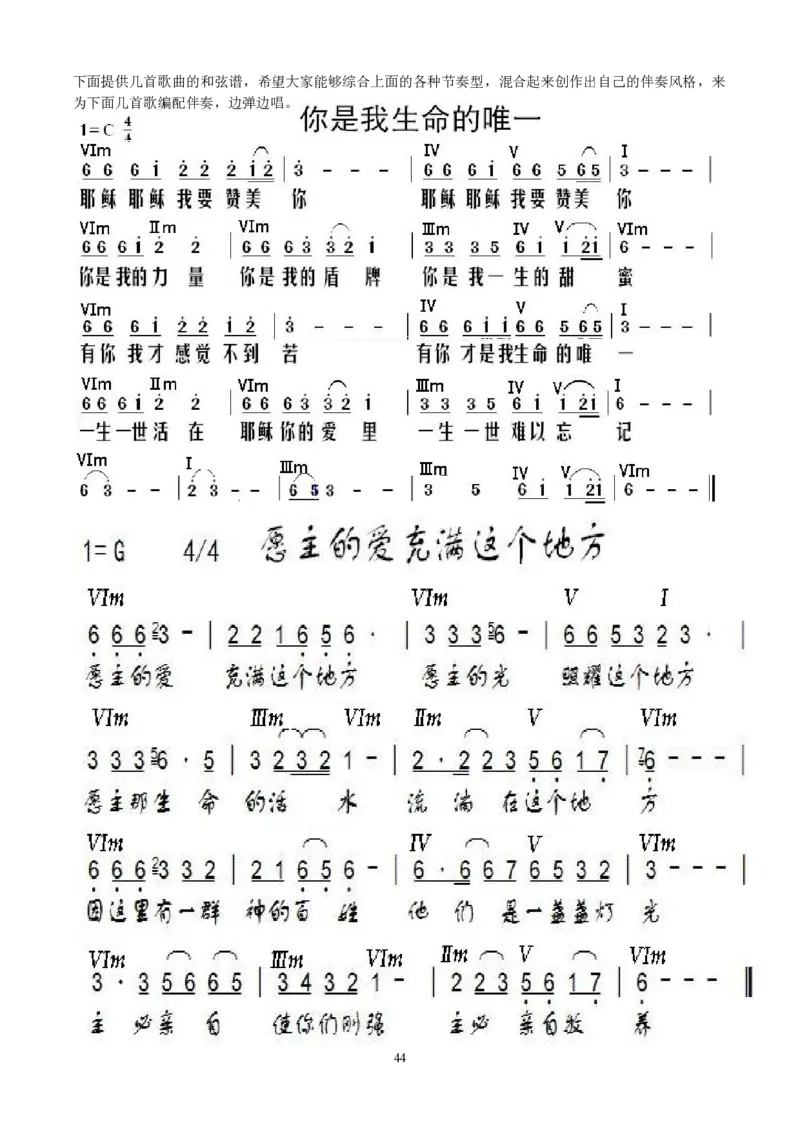 下面提供几首歌曲的和弦谱，希望大家能够综合上面的各种节奏型，混合起来创作出自己的伴奏风格，来
为下面几首歌编配伴奏，边弹边唱。
你是我生命的唯一
1=C 4/4
VIm IV V I
6 6 6 i 2 2 2 i 2 | 3 - - - | 6 6 6 i 6 6 5 6 5 | 3 - - - |
耶稣 耶稣 我要 赞美 你 耶稣 耶稣 我要 赞美 你
VIm IIm VIm IIIm IV V VIm
6 6 6 i 2 2 | 6 6 6 3 3 2 i | 3 3 3 5 6 i i 2 i | 6 - - - |
你是我的力 量 你是我的盾 牌 你是 我一 生的 甜 蜜
VIm IV V I
6 6 6 i 2 2 i 2 | 3 - - - | 6 6 6 i i 6 6 5 6 5 | 3 - - - |
有你 我才 感觉 不到 苦 有你 才是我生命 的唯 一
VIm IIm VIm IIIm IV V I
6 6 6 i 2 2 | 6 6 6 3 3 2 i | 3 3 3 5 6 i i 2 i | 6 - - - |
一生一世活 在 耶稣你的爱 里 一生 一世 难以 忘 记
VIm I IIIm IIIm IV V VIm
6 3 - - | 2 3 - - | 6 5 3 - - | 3 5 6 i i 2 i | 6 - - - ||
1=G 4/4 愿主的爱充满这个地方
VIm VIm V I
6 6 6 2 3 - | 2 2 1 6 5 6 · | 3 3 3 5 6 - | 6 6 5 3 2 3 · |
愿主的爱 充满这个地方 愿主的光 照耀这个地方
VIm IIIm VIm IIm V VIm
3 3 3 5 6 · 5 | 3 2 3 2 1 - | 2 · 2 2 3 5 6 1 7 | 7 6 - - - |
愿主那生 命 的活 水 流 淌 在这个地 方
VIm IV V VIm
6 6 6 2 3 3 2 | 2 1 6 5 6 - | 6 · 6 6 7 6 5 3 2 | 3 - - - |
因这里有一群 神的百 姓 他 们 是一盏盏灯 光
VIm IIIm VIm IIm V VIm
3 · 3 5 6 6 5 | 3 4 3 2 1 - | 2 2 3 5 6 1 7 | 6 - - - ||
主 必亲 自 使你们刚强 主必 亲自牧 养
44